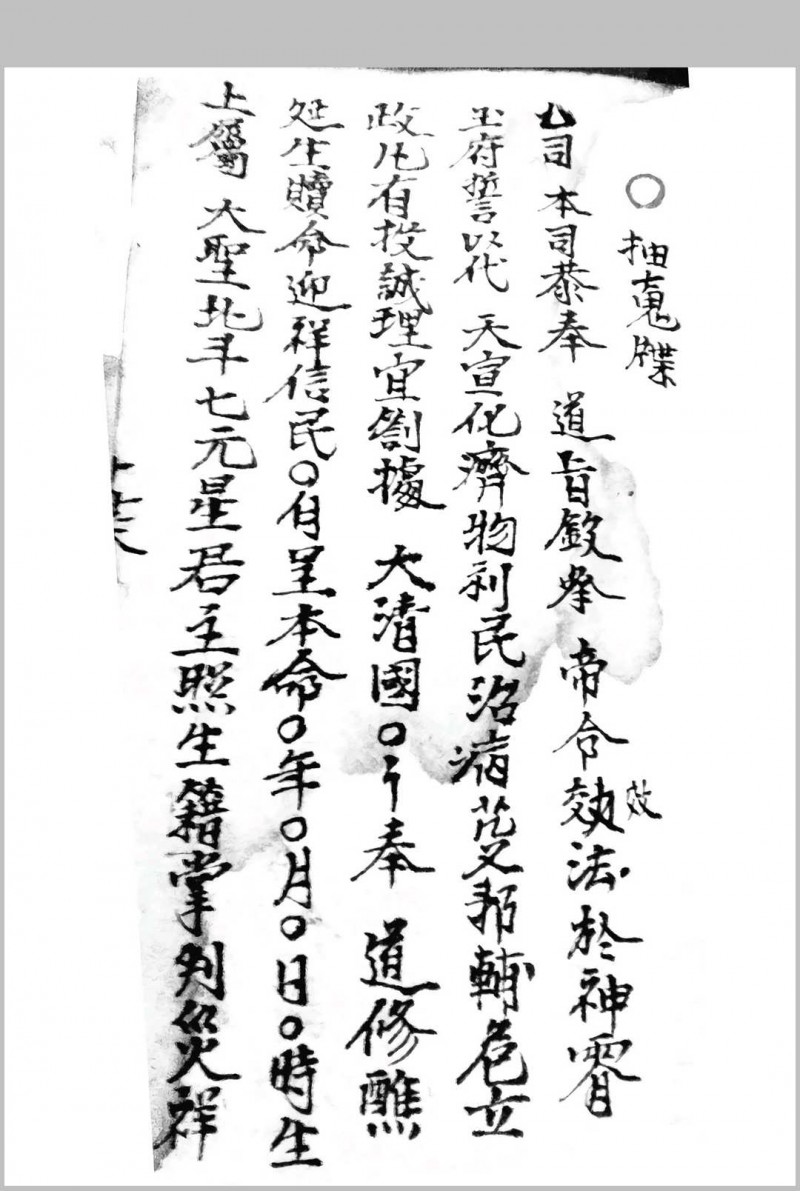 ○ 抽魂牒
厶司 本司恭奉 道旨 帝令効法於神霄
效
玉府誓以代 天宣化濟物利民治病 邦輔危立
政凡有投誠理宜劄據 大清國○ 奉 道修醮
延生贖命迎祥信民○ 呈本命○年○月○日○時生
上屬 大聖北斗七元星君主照生籍掌判災祥